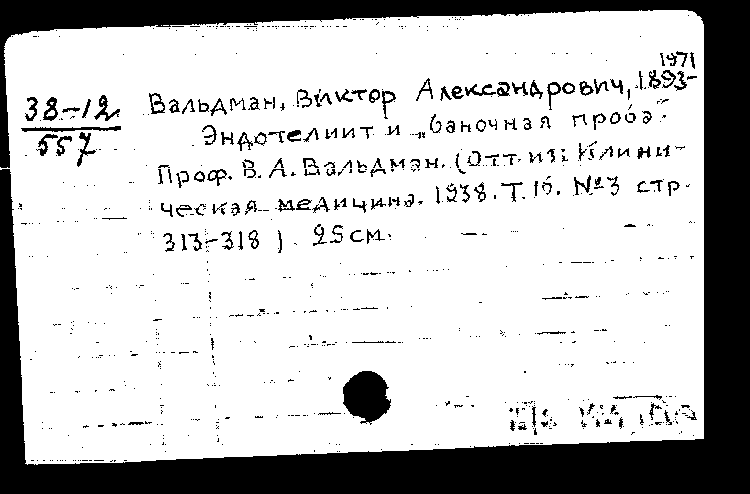 1971
38-12
557
Вальдман, Виктор Александрович, 1893-
Эндотелиит и „баночная проба".
Проф. В. А. Вальдман. (Отт. из: Клини-
ческая медицина. 1938. Т. 16. №3 стр.
313-318 ) 25 см.